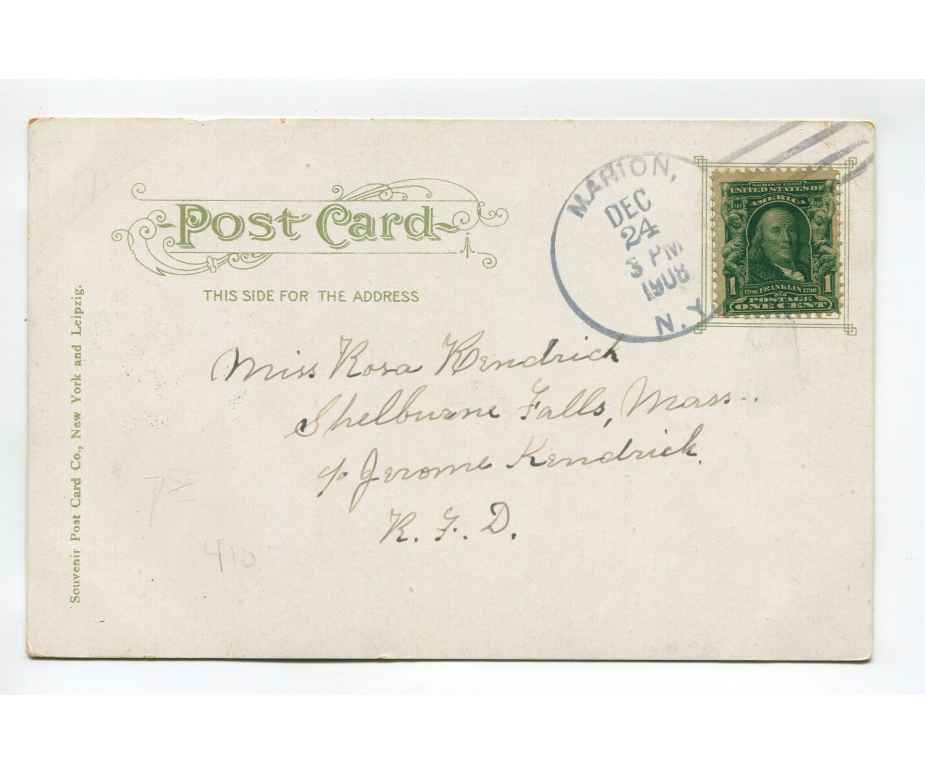 Post Card
THIS SIDE FOR THE ADDRESS
MARION,
DEC
24
3 PM
1908
N.Y.
SERIES 1902
UNITED STATES OF
AMERICA
1 FRANKLIN 1
POSTAGE
ONE CENT
Miss Rosa Kendrick
Shelburne Falls, Mass..
c/o Jerome Kendrick.
R. F. D.
410
Souvenir Post Card Co., New York and Leipzig.